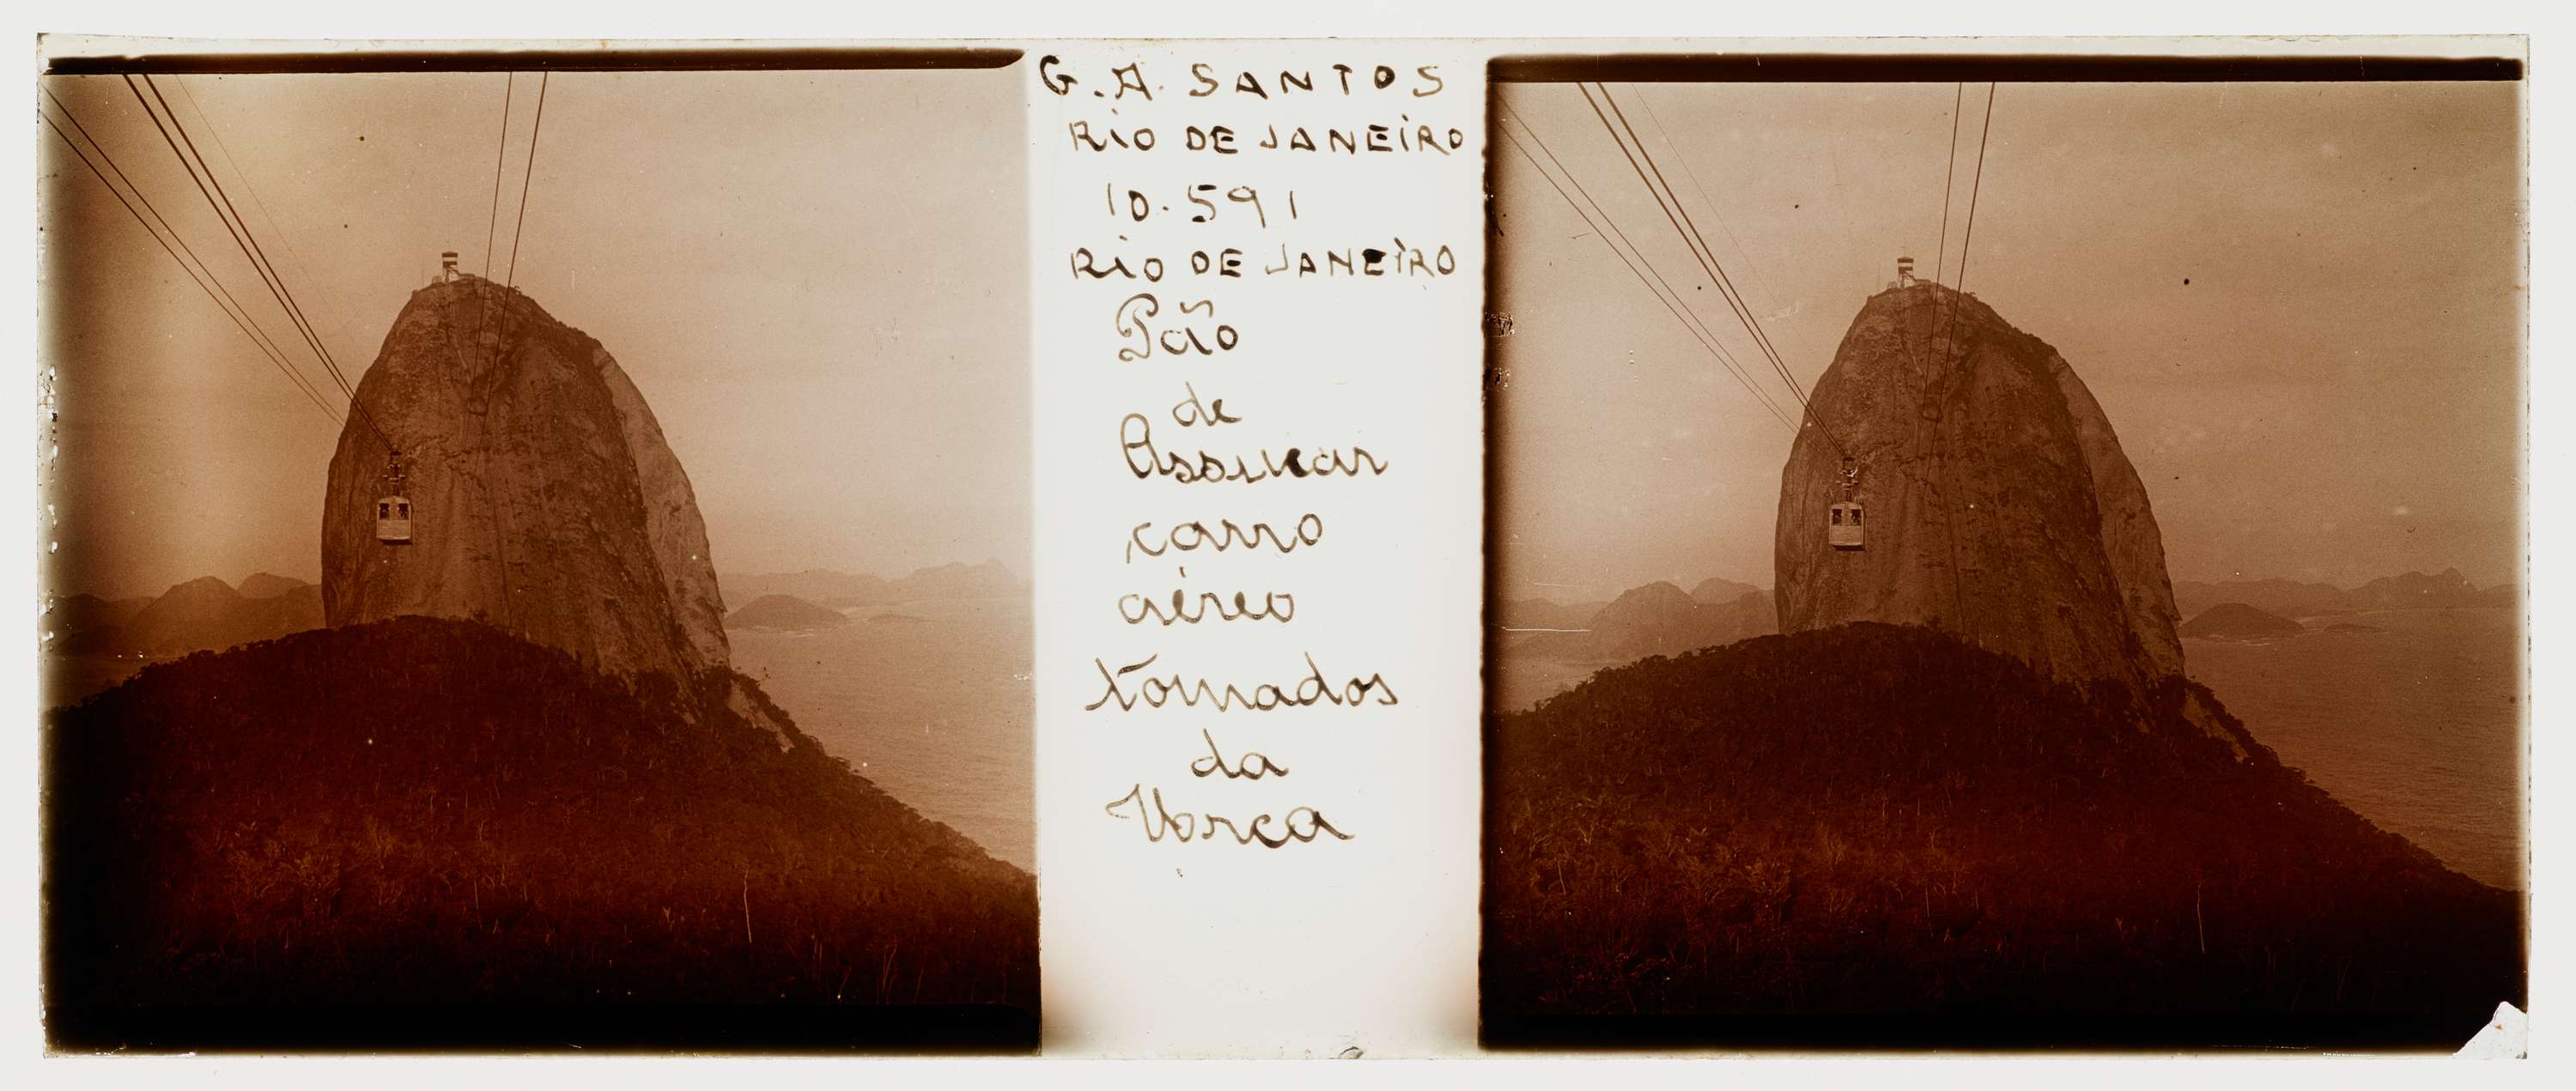 G. A. SANTOS
RIO DE JANEIRO
10.591
RIO DE JANEIRO
Pão
de
Assucar
carro
aéreo
tomados
da
Urca